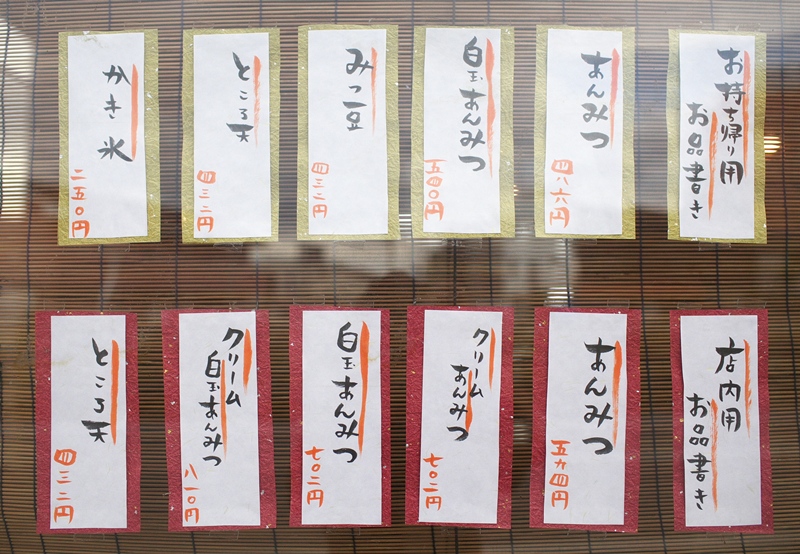 お持ち帰り用
お品書き
あんみつ
四八六円
白玉あんみつ
五四〇円
みつ豆
四三二円
ところ天
四三二円
かき氷
二五〇円
店内用
お品書き
あんみつ
五九四円
クリーム
あんみつ
七〇二円
白玉あんみつ
七〇二円
クリーム
白玉あんみつ
八一〇円
ところ天
四三二円